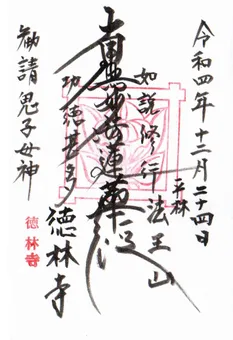 令和四年十二月二十四日
平林
法王山
如説修行
南無妙法蓮華経
功徳甚多
徳林寺
勧請鬼子母神
徳林寺